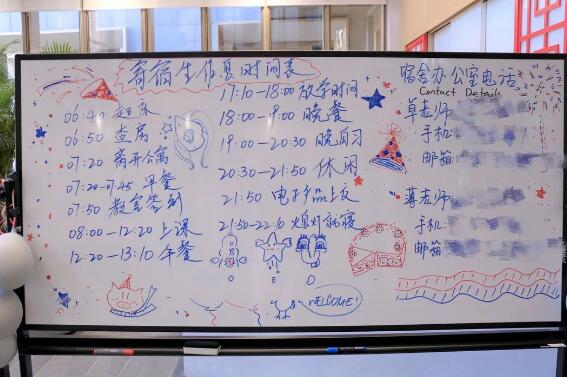 寄宿生作息时间表
06:40 起床
06:50 查房
07:20 离开公寓
07:20-07:45 早餐
07:50 教室签到
08:00-12:20 上课
12:20-13:10 午餐
17:10-18:00 放学时间
18:00-19:00 晚餐
19:00-20:30 晚自习
20:30-21:50 休闲
21:50 电子产品上交
21:50-22:10 熄灯就寝
O E D
WELCOME!
宿舍办公室电话
Contact Details
草老师:
手机:
邮箱:
薄老师:
手机:
邮箱: